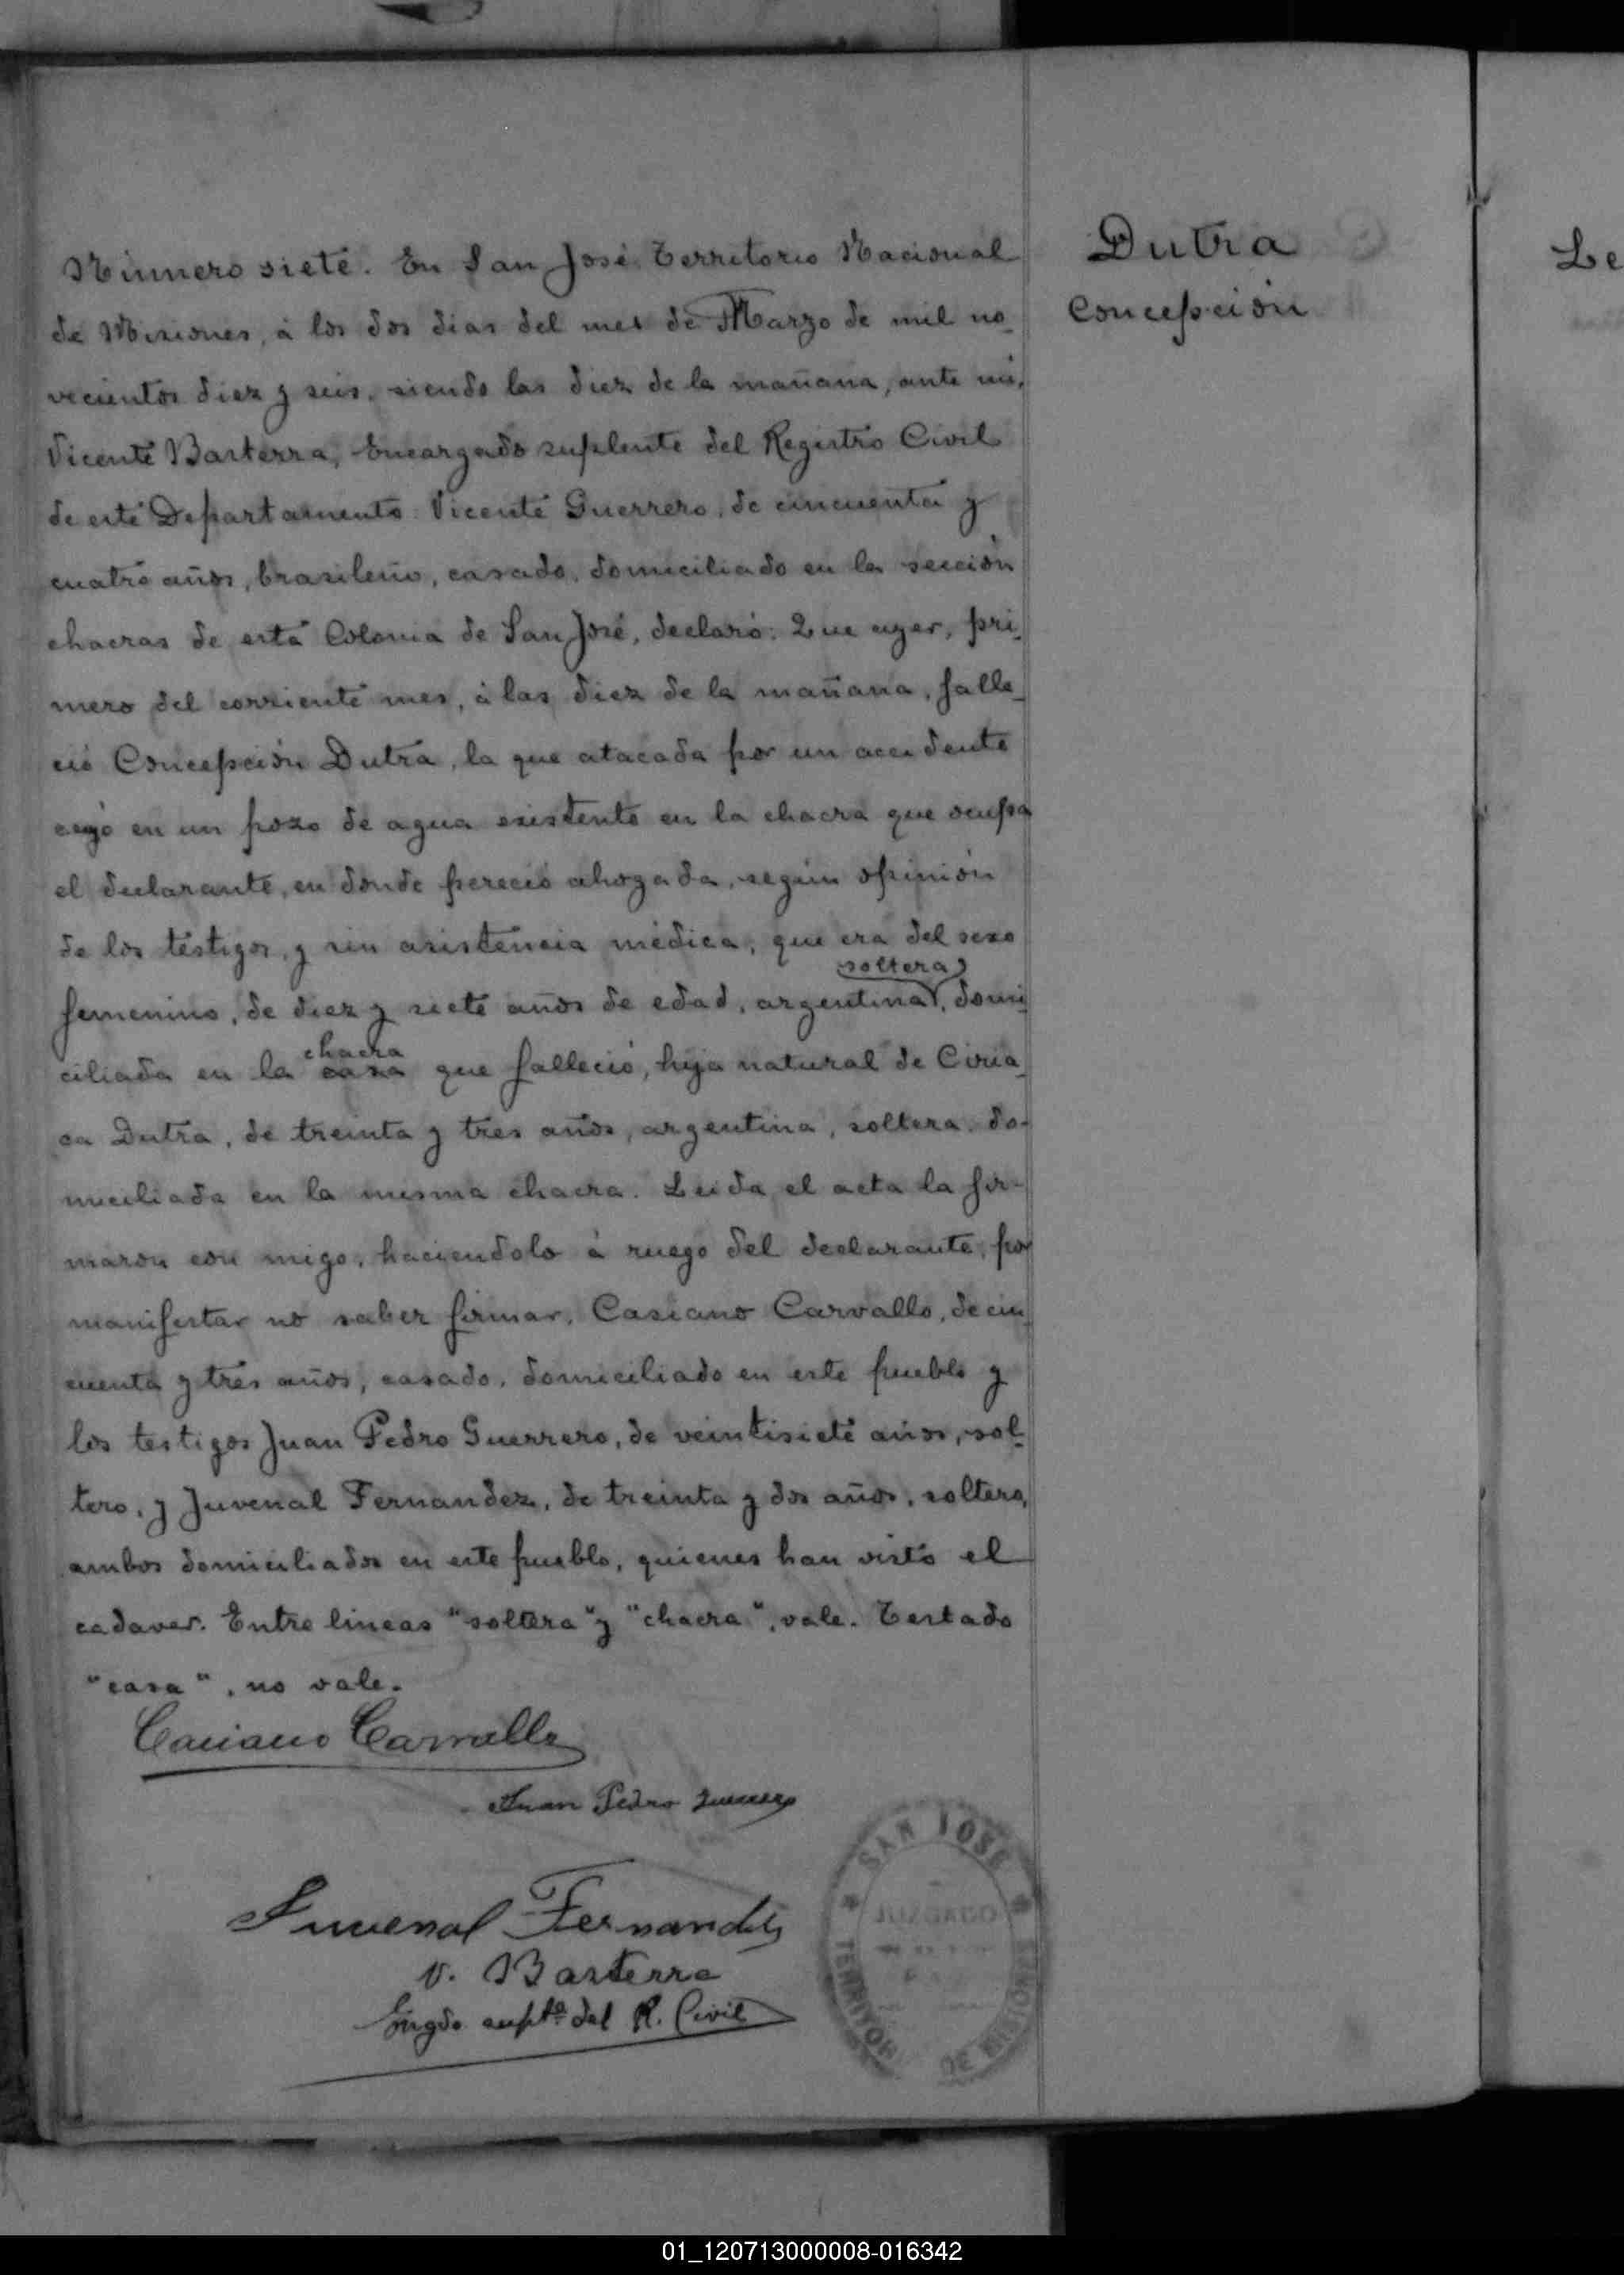 Dutra
Concepción
Le
Número siete. En San José Territorio Nacional
de Misiones, á los dos dias del mes de Marzo de mil no_
vecientos diez y seis, siendo las diez de la mañana, ante mi,
Vicente Basterra, Encargado suplente del Registro Civil
de este Departamento: Vicente Guerrero, de cincuenta y
cuatro años, brasileño, casado, domiciliado en la sección
chacras de esta Colonia de San José, declaró: Que ayer, pri_
mero del corriente mes, á las diez de la mañana, falle_
ció Concepción Dutra, la que atacada por un accidente
cayó en un pozo de agua existente en la chacra que ocupa
el declarante, en donde pereció ahogada, según opinión
de los testigos, y sin asistencia médica, que era del sexo
soltera
femenino, de diez y siete años de edad, argentina, domi_
chacra
ciliada en la casa que falleció, hija natural de Ciria_
ca Dutra, de treinta y tres años, argentina, soltera, do-
miciliada en la misma chacra. Leida el acta la fir-
maron con migo, haciendolo á ruego del declarante, por
manifestar no saber firmar, Casiano Carvallo, de cin_
cuenta y tres años, casado, domiciliado en este pueblo y
los testigos Juan Pedro Guerrero, de veintisiete años, sol_
tero, y Juvenal Fernandez, de treinta y dos años, soltero,
ambos domiciliados en este pueblo, quienes han visto el
cadaver. Entre lineas "soltera" y "chacra", vale. Testado
"casa", no vale.
Casiano Carvallo
Juan Pedro Guerrero
Juvenal Fernandez
V. Basterra
Engdo supte del R. Civil
SAN JOSE
JUZGADO
TERRITOR
DE MISIONES
01_120713000008-016342